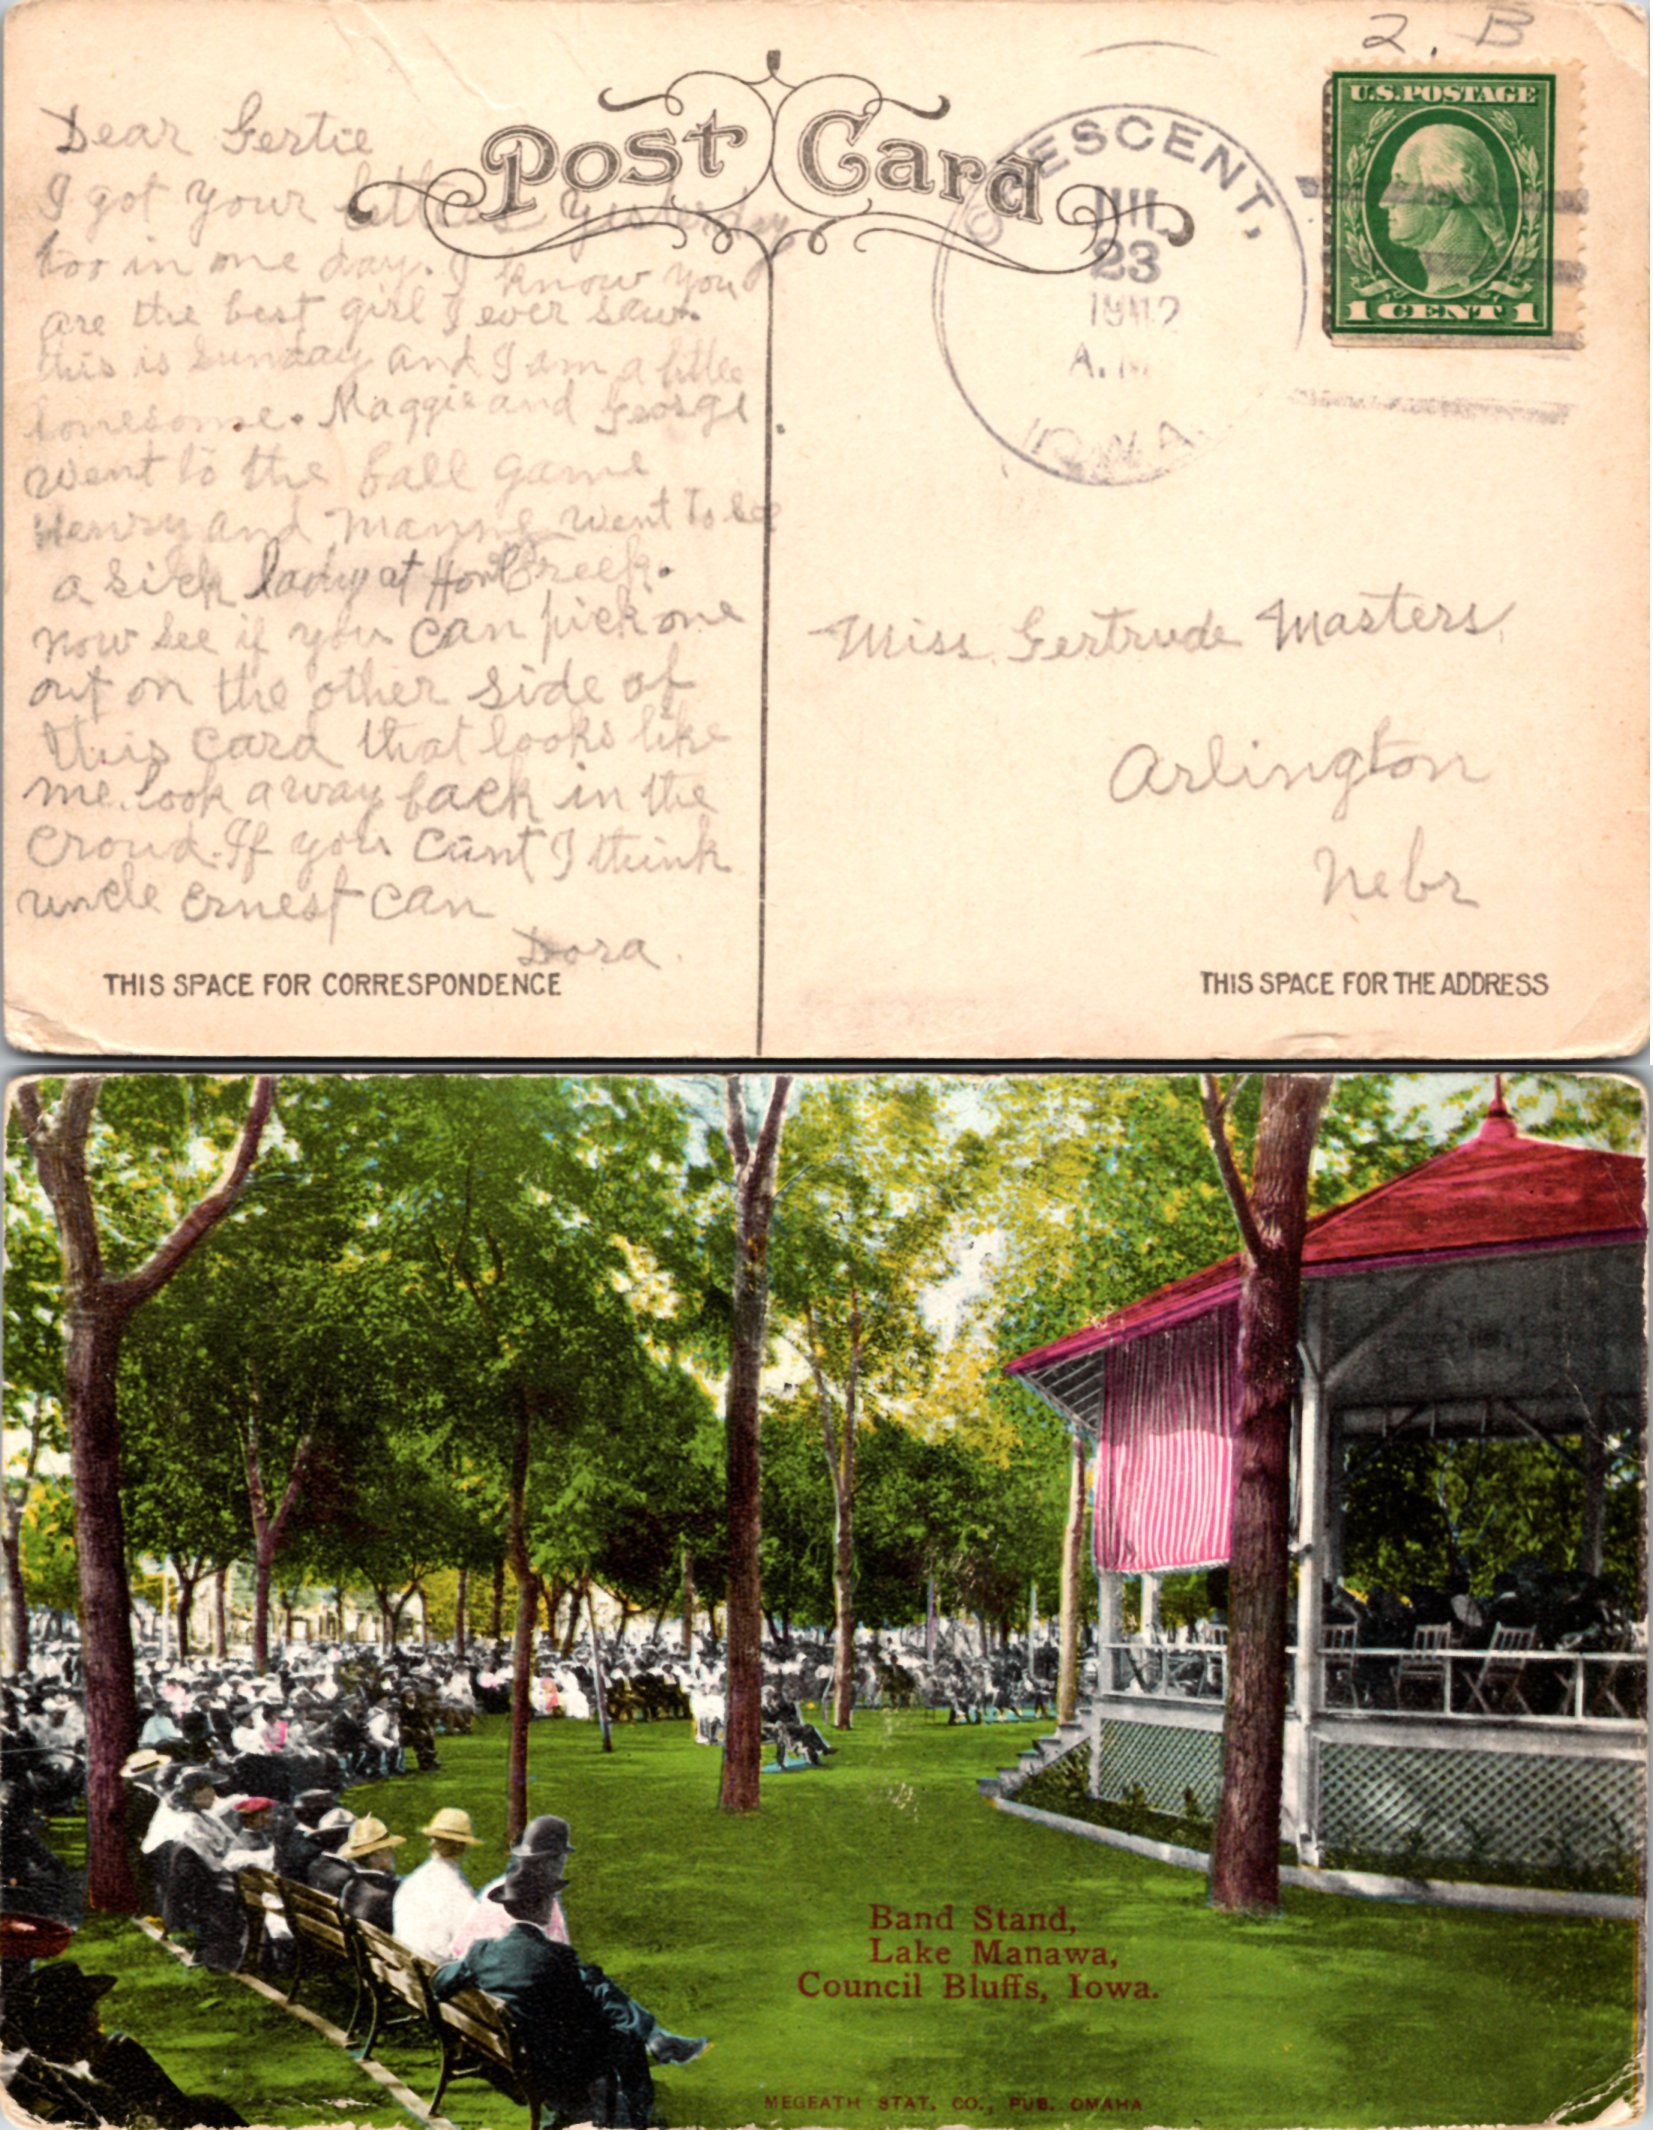 2. B
Post Card
U.S. POSTAGE
1 CENT 1
CRESCENT,
JUL
23
1912
A.M.
IOWA.
Dear Gertie
I got your letters yesterday
too in one day. I know you
are the best girl I ever saw.
this is Sunday and I am a little
lonesome. Maggie and George
went to the ball game
Henry and Mayme went to see
a sick lady at Creek.
now see if you can pick one
out on the other side of
this card that looks like
me. look away back in the
croud. If you cant I think
uncle Ernest can
Dora.
Miss Gertrude Masters
Arlington
Nebr
THIS SPACE FOR CORRESPONDENCE
THIS SPACE FOR THE ADDRESS
Band Stand,
Lake Manawa,
Council Bluffs, Iowa.
MEGEATH STAT. CO., PUB. OMAHA